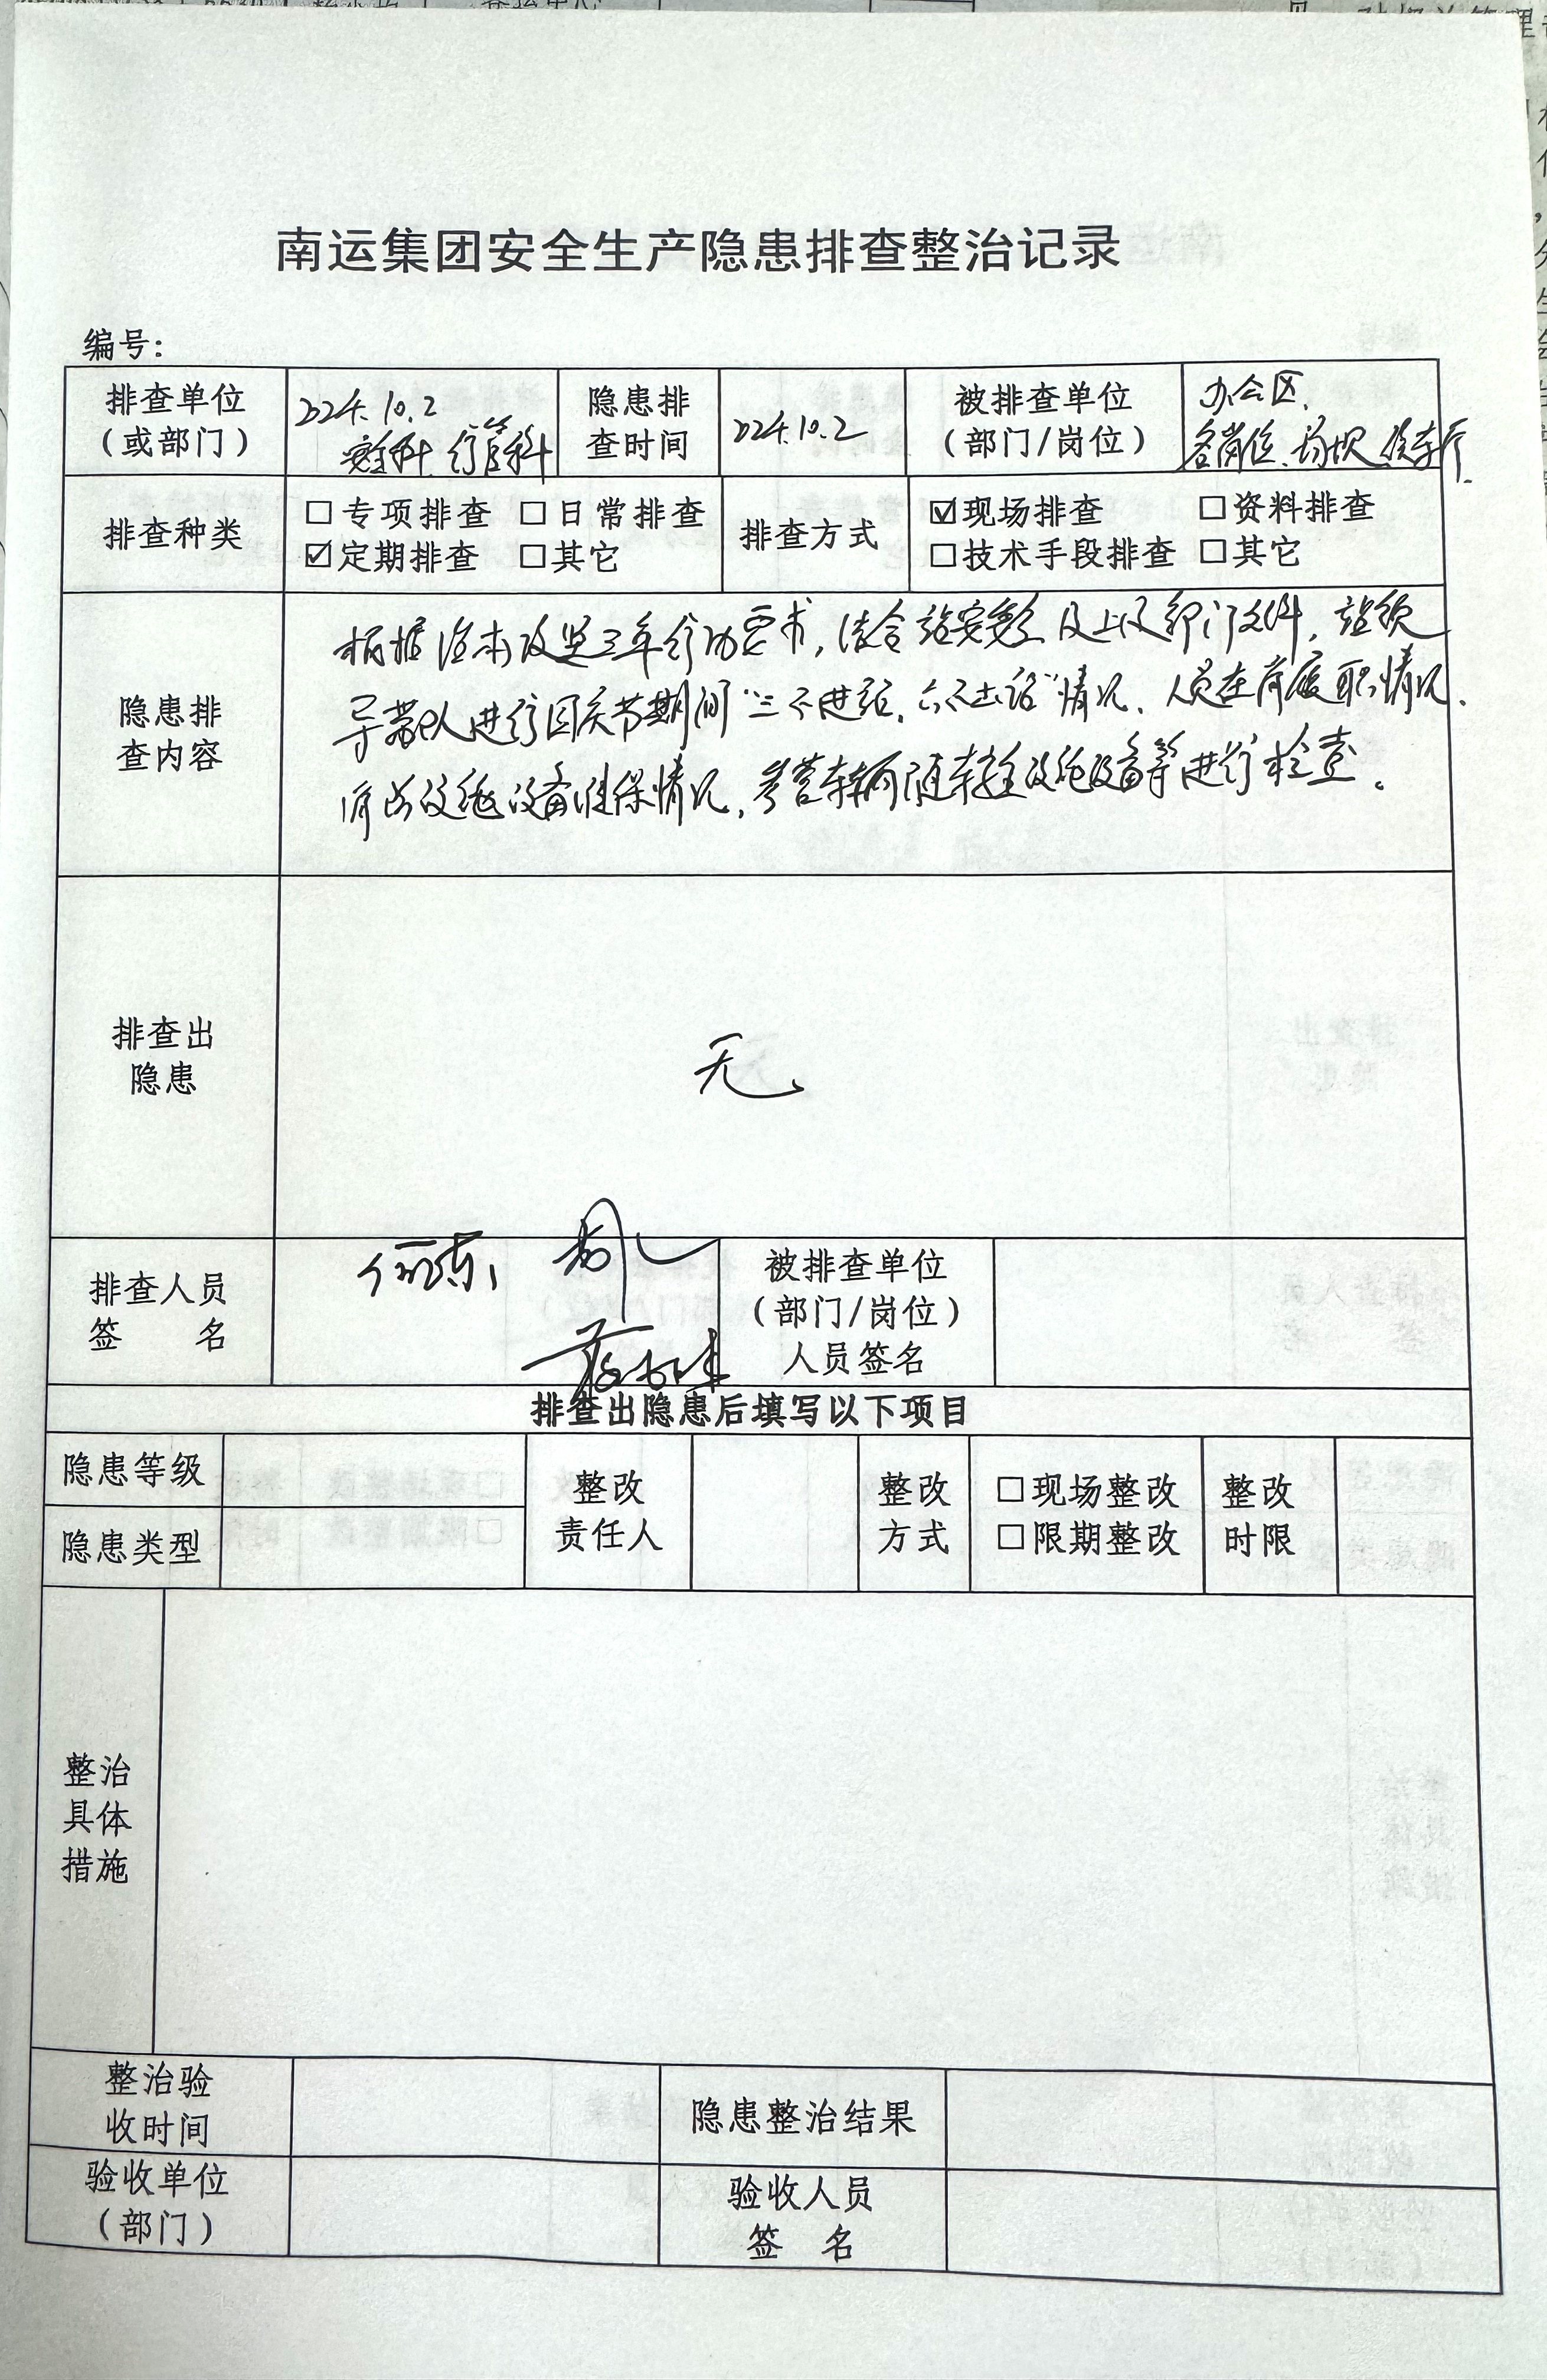 南运集团安全生产隐患排查整治记录
编号：
排查单位
（或部门）
2024.10.2
安全科、行管科
隐患排
查时间
2024.10.2
被排查单位
（部门/岗位）
办公区、
各岗位、场坝、候车厅
排查种类
□专项排查 □日常排查
☑定期排查 □其它
排查方式
☑现场排查 □资料排查
□技术手段排查 □其它
隐患排
查内容
根据治本攻坚三年行动要求，结合站安委会及上级部门文件，站领
导带队进行国庆节期间“三不进站、六不出站”情况、人员在岗履职情况、
消防设施设备维保情况，参营车辆随车安全设施设备等进行检查。
排查出
隐患
无
排查人员
签 名
被排查单位
（部门/岗位）
人员签名
排查出隐患后填写以下项目
隐患等级
隐患类型
整改
责任人
整改
方式
□现场整改
□限期整改
整改
时限
整治
具体
措施
整治验
收时间
隐患整治结果
验收单位
（部门）
验收人员
签 名